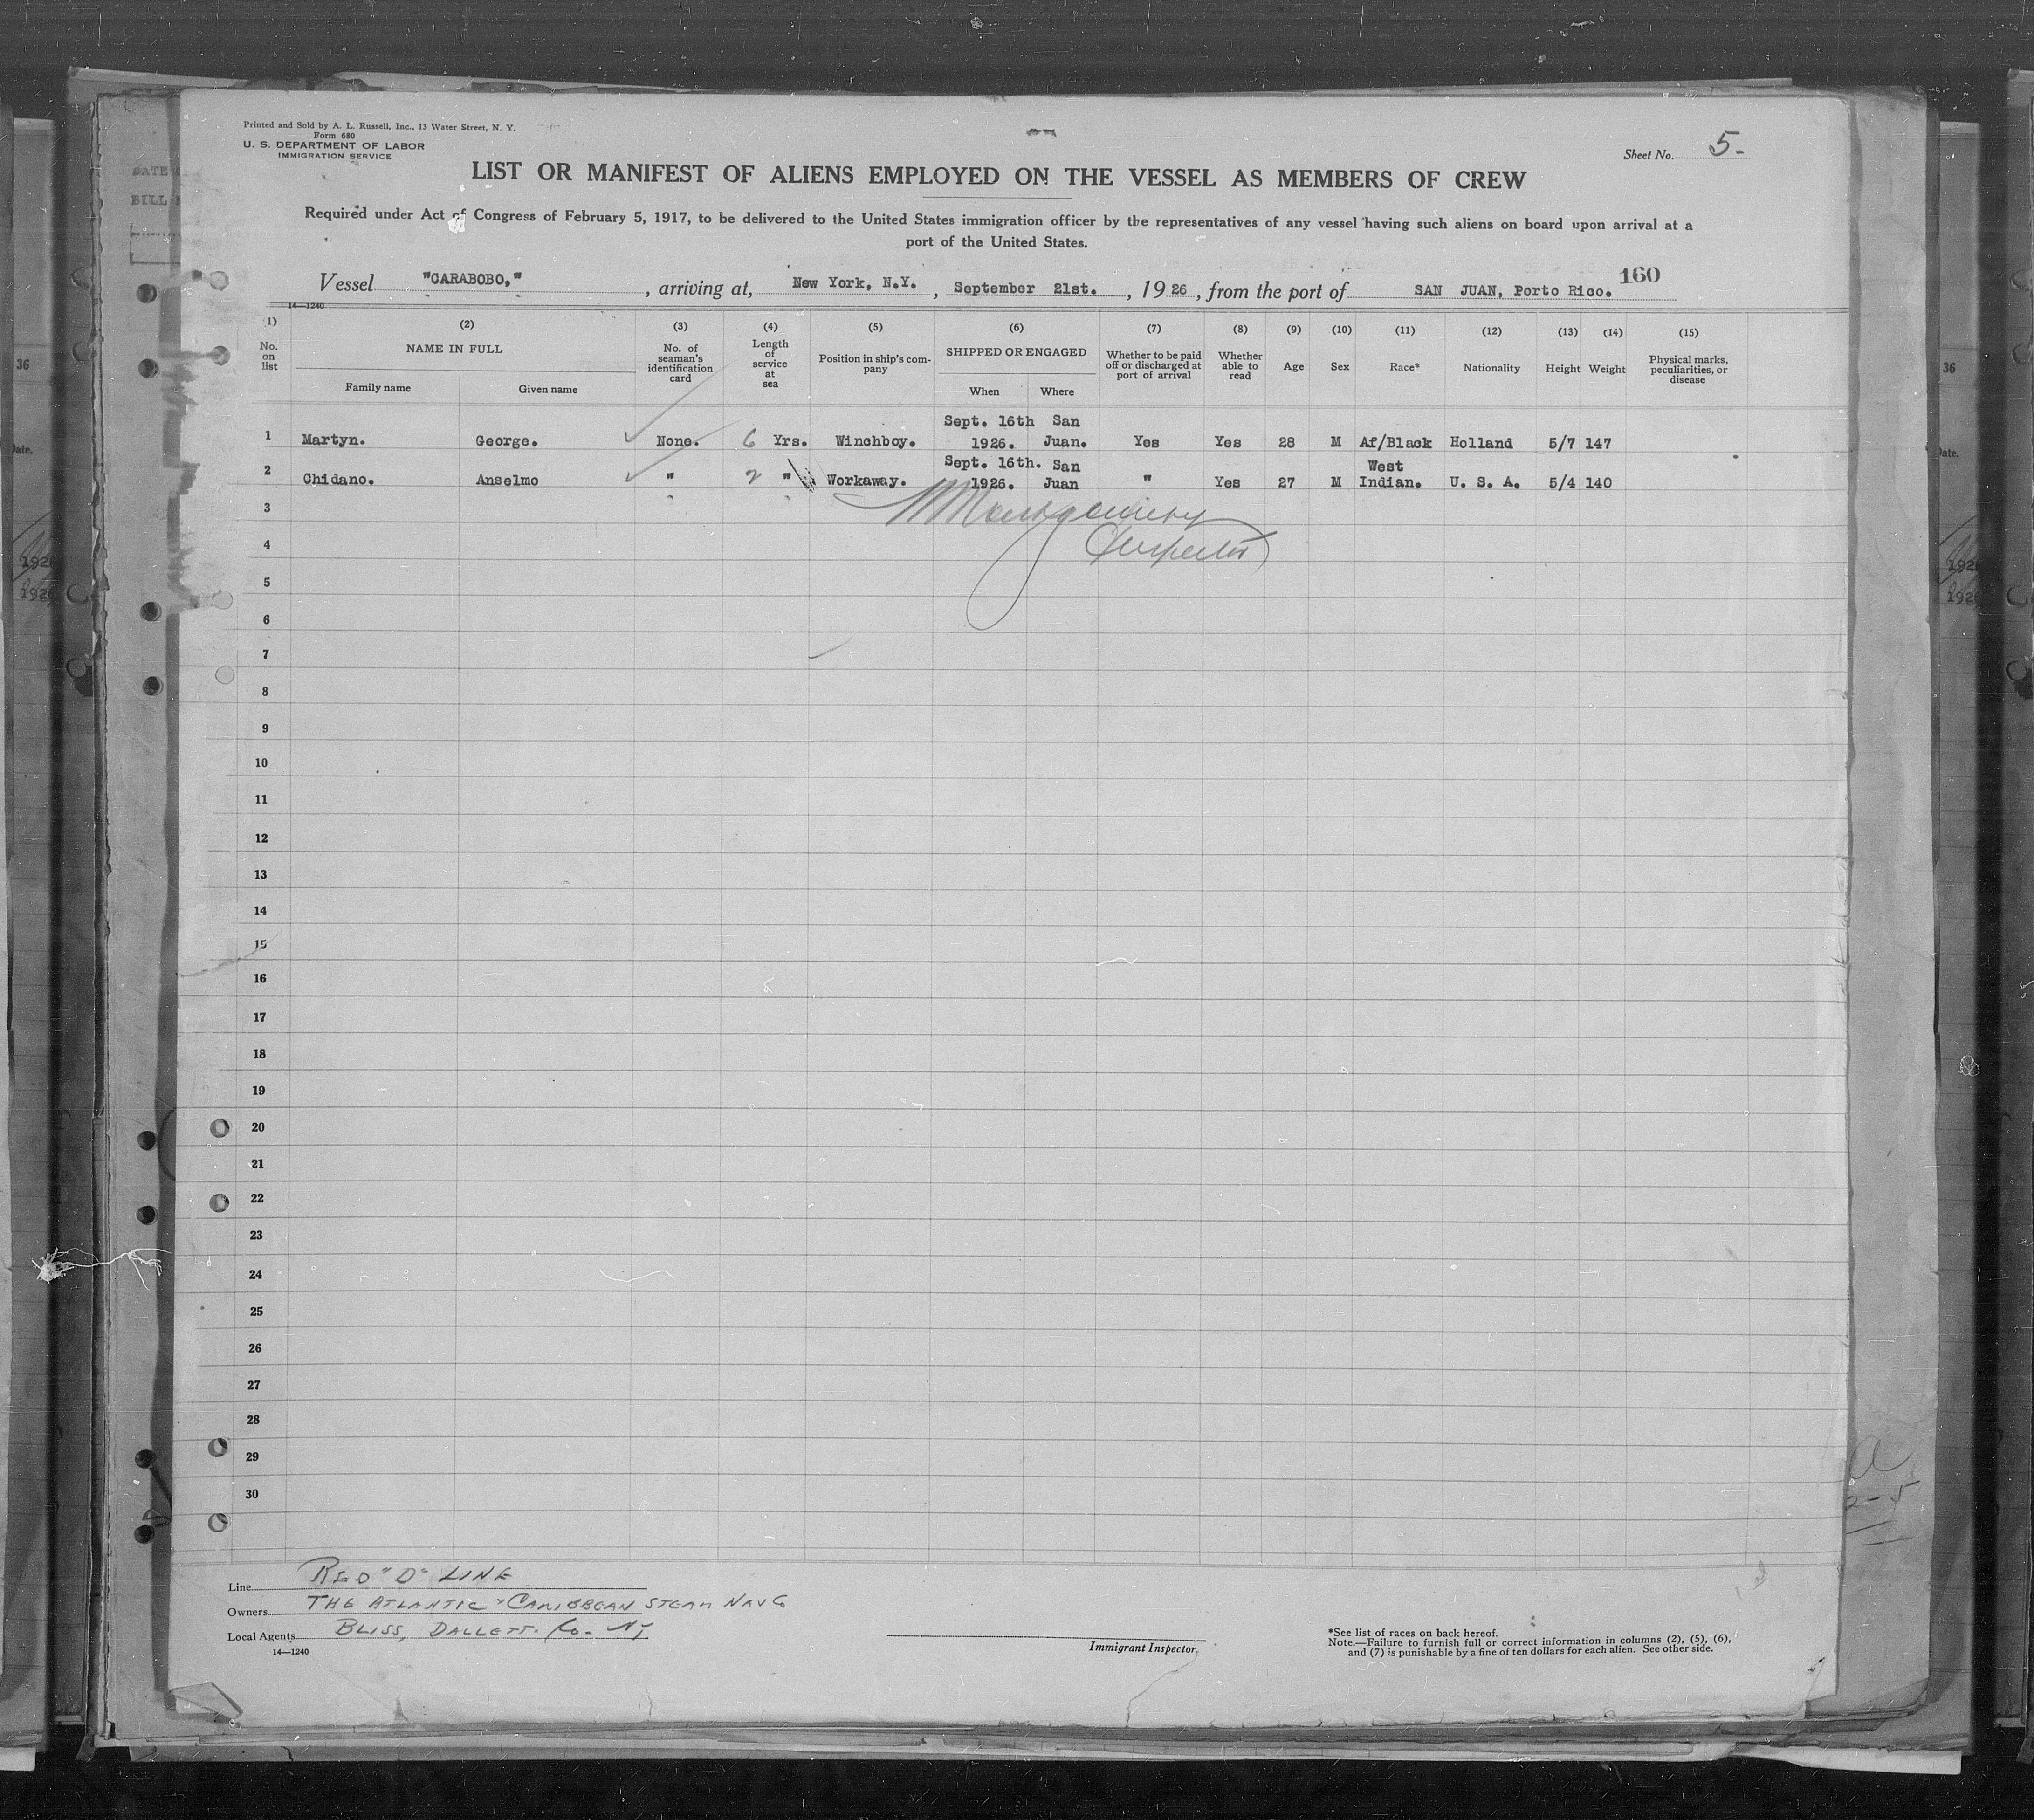 Printed and Sold by A. L. Russell, Inc., 13 Water Street, N. Y.
Form 680
U. S. DEPARTMENT OF LABOR
IMMIGRATION SERVICE
Sheet No. 5-
LIST OR MANIFEST OF ALIENS EMPLOYED ON THE VESSEL AS MEMBERS OF CREW
Required under Act of Congress of February 5, 1917, to be delivered to the United States immigration officer by the representatives of any vessel having such aliens on board upon arrival at a
port of the United States.
160
Vessel "CARABOBO," , arriving at, New York, N.Y. , September 21st. , 1926 , from the port of SAN JUAN, Porto Rico.
14—1240
1) (2) (3) (4) (5) (6) (7) (8) (9) (10) (11) (12) (13) (14) (15)
No. on list NAME IN FULL No. of seaman's identification card Length of service at sea Position in ship's company SHIPPED OR ENGAGED Whether to be paid off or discharged at port of arrival Whether able to read Age Sex Race* Nationality Height Weight Physical marks, peculiarities, or disease
Family name Given name When Where
1 Martyn. George. None. 6 Yrs. Winchboy. Sept. 16th 1926. San Juan. Yes Yes 28 M Af/Black Holland 5/7 147
2 Chidano. Anselmo " 2 " Workaway. Sept. 16th. 1926. San Juan " Yes 27 M West Indian. U. S. A. 5/4 140
3
Montgomery
4
Inspector
5
6
7
8
9
10
11
12
13
14
15
16
17
18
19
20
21
22
23
24
25
26
27
28
29
30
Line RED "D" LINE
Owners THE ATLANTIC & CARIBBEAN STEAM NAV Co
Local Agents BLISS, DALLETT Co. NY
14—1240
Immigrant Inspector.
*See list of races on back hereof.
Note.—Failure to furnish full or correct information in columns (2), (5), (6),
and (7) is punishable by a fine of ten dollars for each alien. See other side.